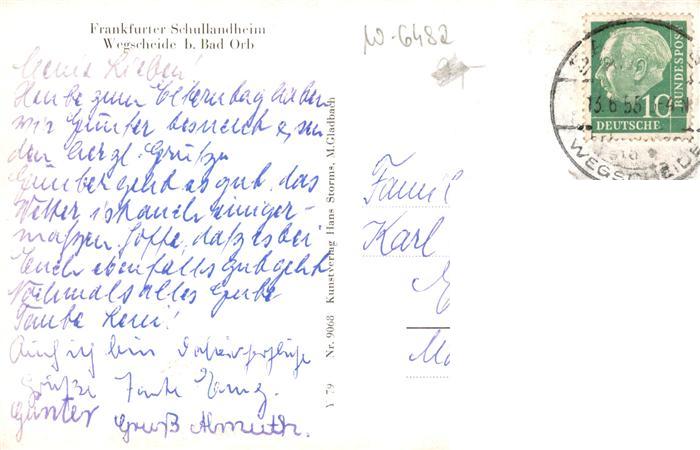 Frankfurter Schullandheim
Wegscheide b. Bad Orb
W-6482
Meine Lieben!
Heute zum Elterntag haben
wir Günter besucht &
den herzl. Grüße
Günter geht es gut, das
Wetter ist auch einiger-
maßen. Hoffe, daß es bei
Euch ebenfalls gut geht
Nochmals alles Gute
Tante
Auch ich bin
Grüße Tante
Günter
Gruß Almuth.
Y 79 Nr. 9068 Kunstverlag Hans Storms, M.Gladbach
Famil
Karl
DEUTSCHE
BUNDESPOST
10
13.6.55
WEGSCHEIDE